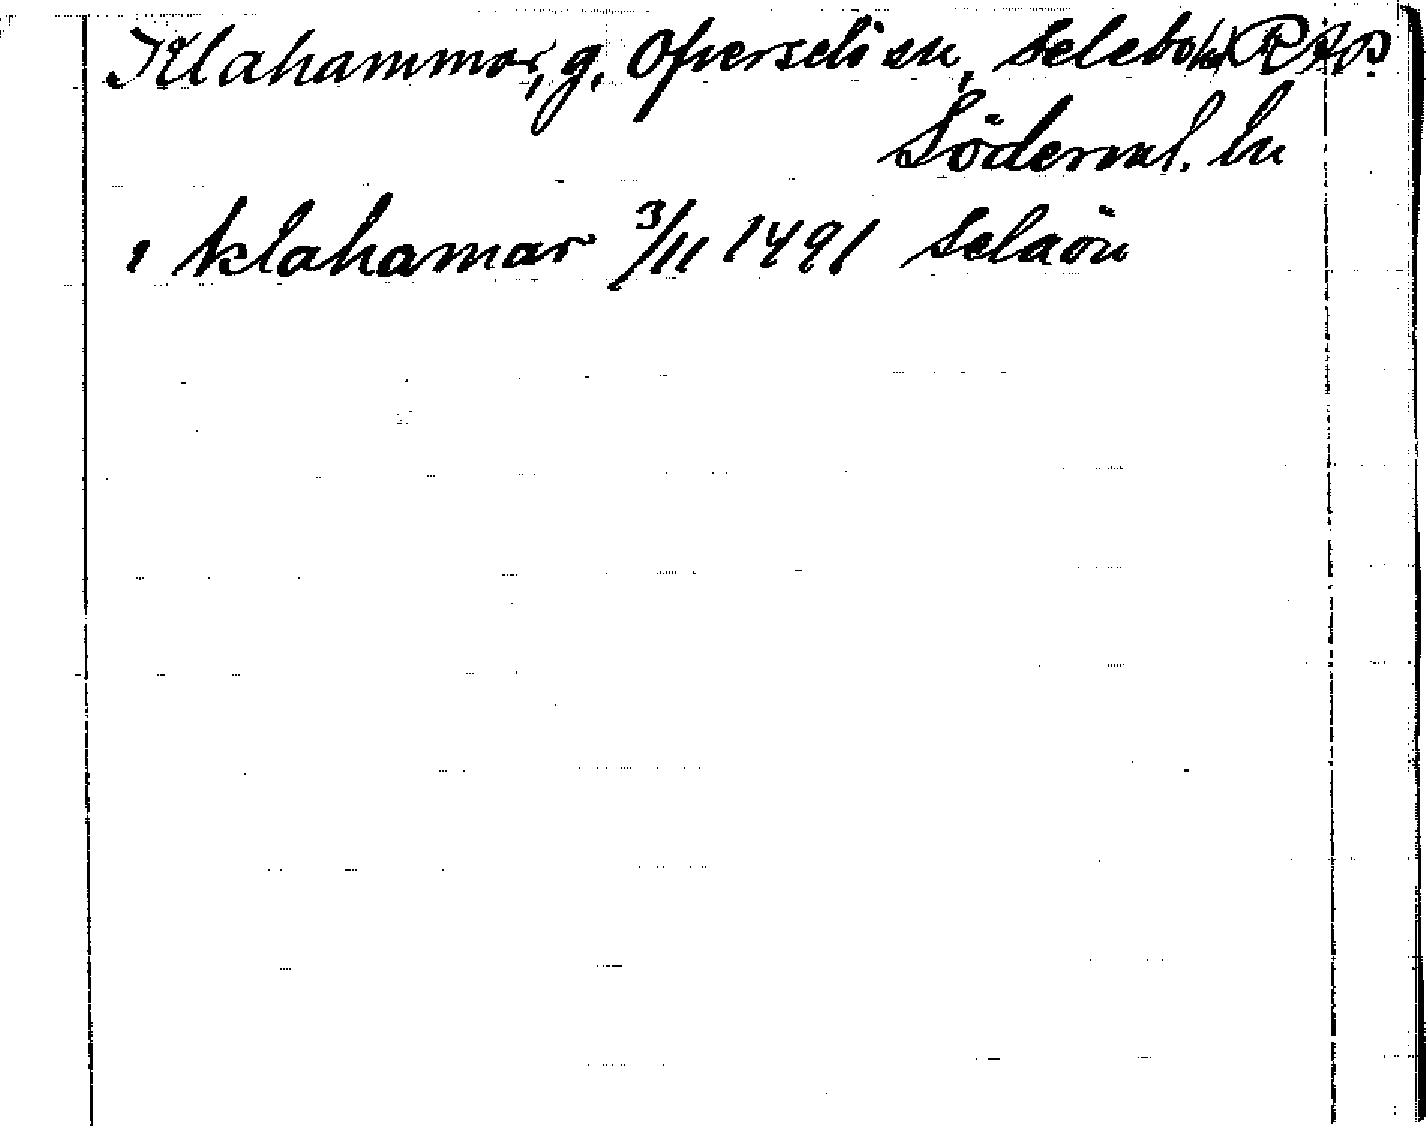 Klahammar, g. Öfverselö sn, Selebo hd RAp.
Söderml. ln
i Klahamar 3/11 1491 Selaön